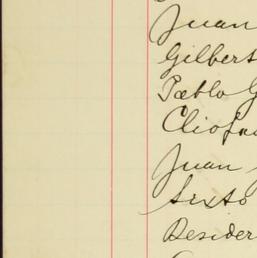 Juan
Gilbert
Pablo G
Cliofa
Juan
Sixto
Desider